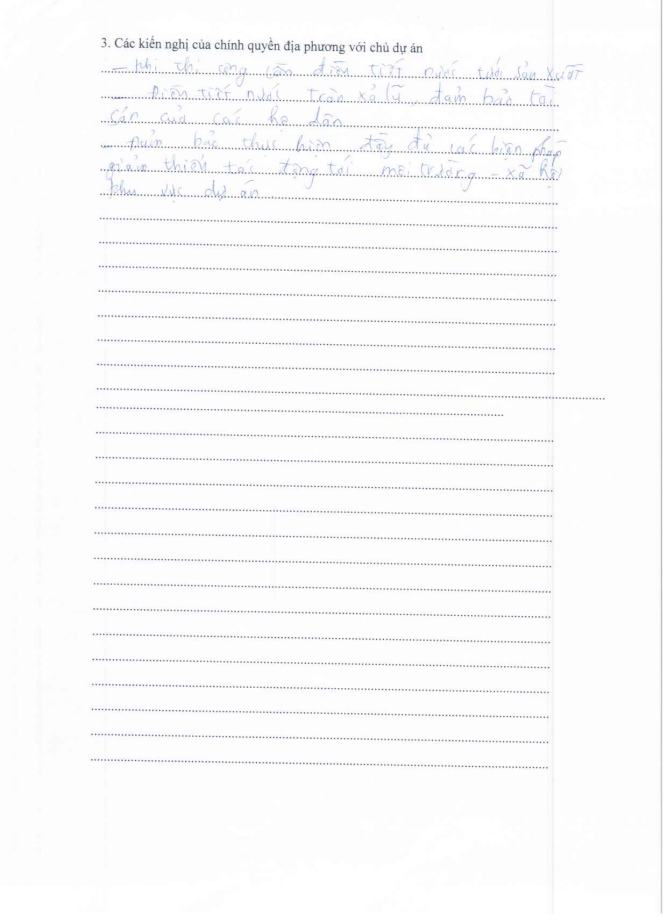 3. Các kiến nghị của chính quyền địa phương với chủ dự án
- Khi thi công cần điều tiết nước tưới sản xuất
- Điều tiết nước tràn xả lũ, đảm bảo tài
sản của các hộ dân
- Đảm bảo thực hiện đầy đủ các biện pháp
giảm thiểu tác động tới môi trường - xã hội
khu vực dự án